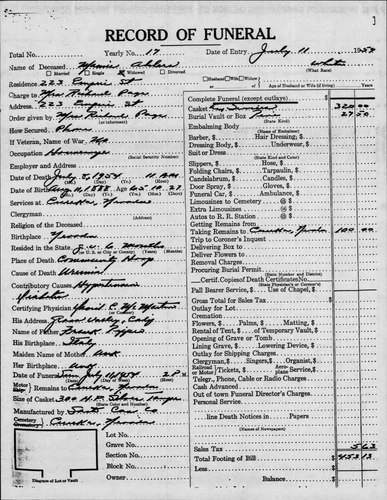 RECORD OF FUNERAL
Total No. Yearly No. 17 Date of Entry July 11 1954
Name of Deceased Minnie
White
(What Race)
Married Single Widowed Divorced
Husband Wife Widow
Residence 223 Empire St
Age of Husband or Wife (if living) Years
Charge to Mrs Richard Page
Address 223 Empire St
Order given by Mrs Richard Page
(or informant)
How Secured Phone
If Veteran, of War No
Occupation Housewife
(Social Security Number)
Employer and Address
Date of Death July 8, 1954 11 A.M.
Date of Birth Aug 11, 1888 Age 65 10 27
Services at Nevada
Clergyman
(Address)
Religion of the Deceased
Birthplace Nevada
Resided in the State
(or U.S. or City or County) (Years) (Months)
Place of Death Community Hosp
Cause of Death Uremia
Contributory Causes Hypertension
Certifying Physician
His Address Grass Valley, Calif
Name of Father Frank
His Birthplace Italy
Maiden Name of Mother unk
Her Birthplace unk
Date of Funeral July 11/1954 2 P.M.
Motor Rail Remains to Nevada
Size of Casket
(State Color and Number)
Manufactured by
Cemetery Crematory Nevada
Lot No.
Grave No.
Section No.
Block No.
Owner
Diagram of Lot or Vault
Complete Funeral (except outlays) $
Casket 320 00
Burial Vault or Box 27 50
(State Kind)
Embalming Body
(Name of Embalmer)
Barber, $ Hair Dressing, $
Dressing Body, $ Underwear, $
Suit or Dress
(State Kind and Color)
Slippers, $ Hose, $
Folding Chairs, $ Tarpaulin, $
Candelabrum, $ Candles, $
Door Spray, $ Gloves, $
Funeral Car, $ Ambulance, $
Limousines to Cemetery @ $
Extra Limousines @ $
Autos to R. R. Station @ $
Getting Remains from
Taking Remains to 100 00
Trip to Coroner's Inquest
Delivering Box to
Deliver Flowers to
Removal Charges
Procuring Burial Permit
(State Number and District)
Certif. Copies of Death Certificates No.
(State Physician's or Coroner's)
Pall Bearer Service, $ Use of Chapel, $
Gross Total for Sales Tax $
Outlay for Lot
Cremation
Flowers, $ Palms, $ Matting, $
Rental of Tent, $ of Temporary Vault, $
Opening of Grave or Tomb
Lining Grave, $ Lowering Device, $
Outlay for Shipping Charges
Clergyman, $ Singers, $ Organist, $
Railroad Motor Tickets, $ Aeroplane Service, $
Telegr., Phone, Cable or Radio Charges
Cash Advanced
Out of town Funeral Director's Charges
Personal Service
line Death Notices in Papers
(Name of Newspapers)
Sales Tax 5 63
Total Footing of Bill $ 453 13
Less
Balance $